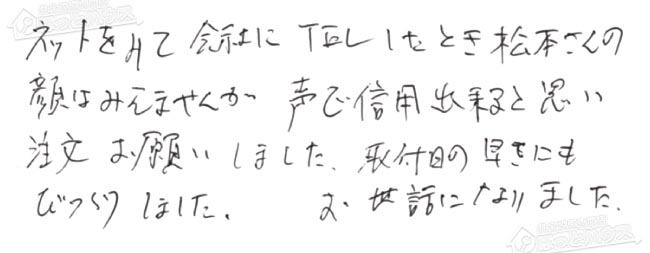 ネットをみて会社にTELしたとき松本さんの
顔はみえませんが声で信用出来ると思い
注文お願いしました、取付日の早さにも
びっくりしました。お世話になりました。